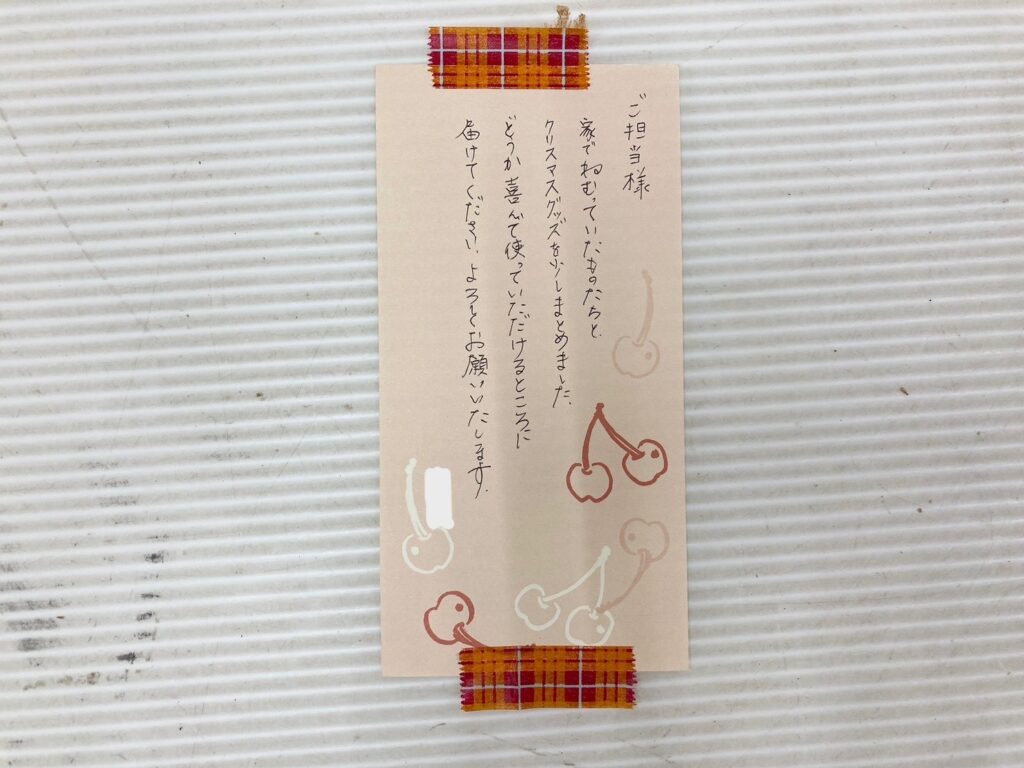 ご担当様
家でねむっていたものたちと、
クリスマスグッズを少しまとめました。
どうか喜んで使っていただけるところに
届けてください。よろしくお願いいたします。